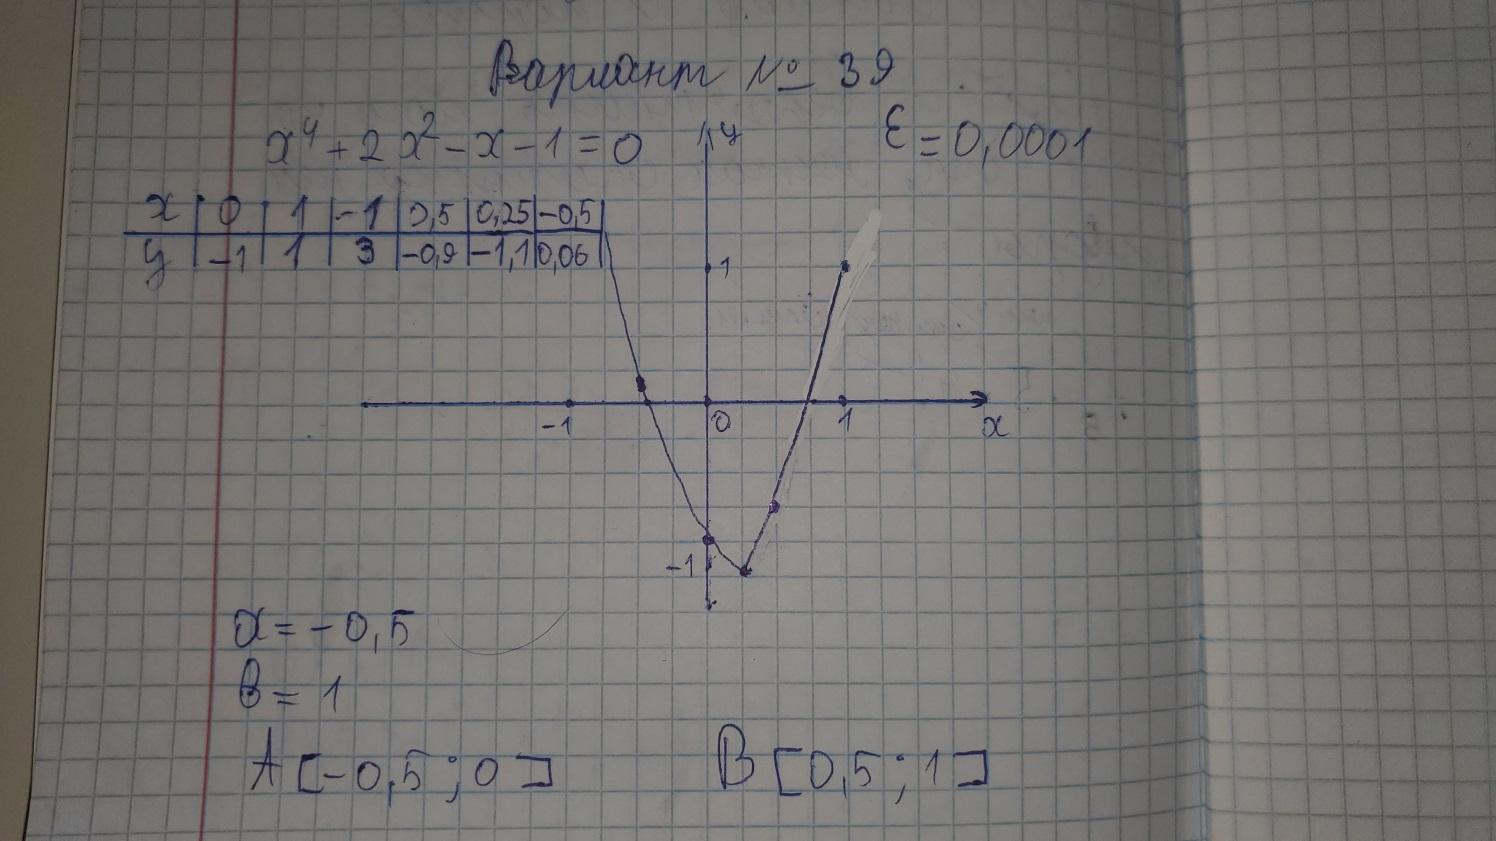 Вариант № 39
x⁴ + 2x² - x - 1 = 0
ε = 0,0001
x | 0 | 1 | -1 | 0,5 | 0,25 | -0,5
y | -1 | 1 | 3 | -0,9 | -1,1 | 0,06
y
1
-1 0 1 x
-1
a = -0,5
в = 1
A [-0,5 ; 0] B [0,5 ; 1]